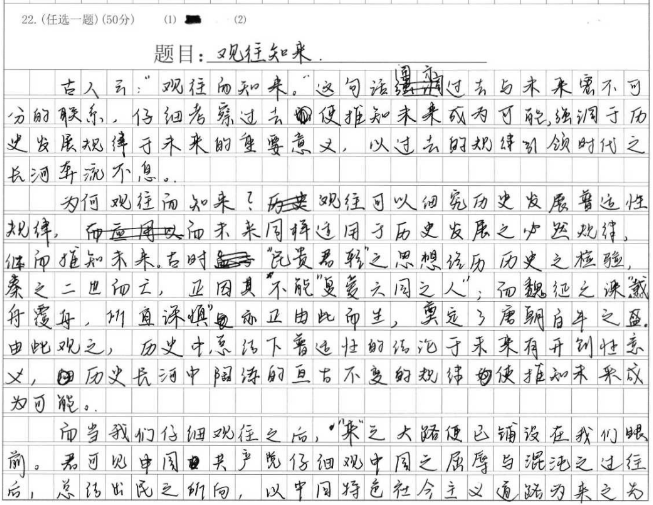 22.(任选一题)(50分) (1) (2)
题目:观往知来.
古人云:“观往而知来。”这句话过去与未来密不可
分的联系,仔细考察过去便推知未来成为可能,强调于历
史发展规律于未来的重要意义,以过去的规律引领时代之
长河奔流不息。
为何观往而知来?观往可以细究历史发展普适性
规律,而未来同样适用于历史发展之必然规律,
继而推知未来。古时“民贵君轻”之思想经历历史之检验,
秦之二世而亡,正因其“不能复爱六国之人”;而魏征之谏“载
舟覆舟,所宜深慎”亦正由此而生,奠定了唐朝百年之盛.
由此观之,历史中总结下普适性的结论于未来有开创性意
义,历史长河中陶练的亘古不变的规律便推知未来成
为可能。
而当我们仔细观往之后,“来”之大路便已铺设在我们眼
前。君可见中国共产党仔细观中国之屈辱与混沌之过往
后,总结出民之所向,以中国特色社会主义道路为来之为